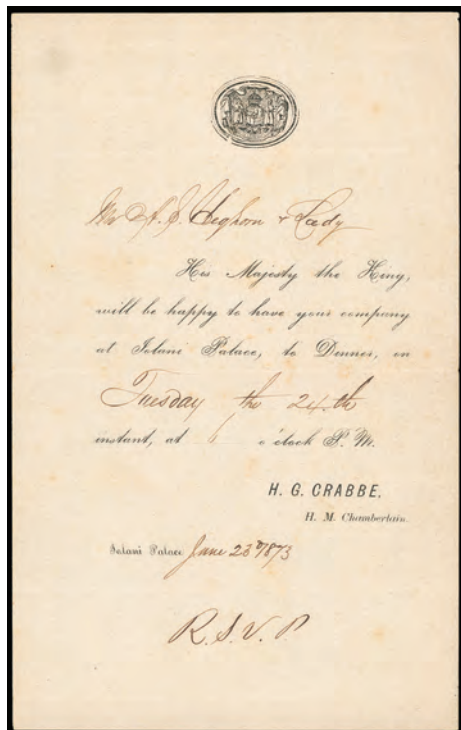 Mr A. S. Cleghorn & Lady
His Majesty the King,
will be happy to have your company
at Iolani Palace, to Dinner, on
Tuesday the 24th
instant, at 6 o'clock P. M.
H. G. CRABBE,
H. M. Chamberlain.
Iolani Palace June 23d 1873
R. S. V. P